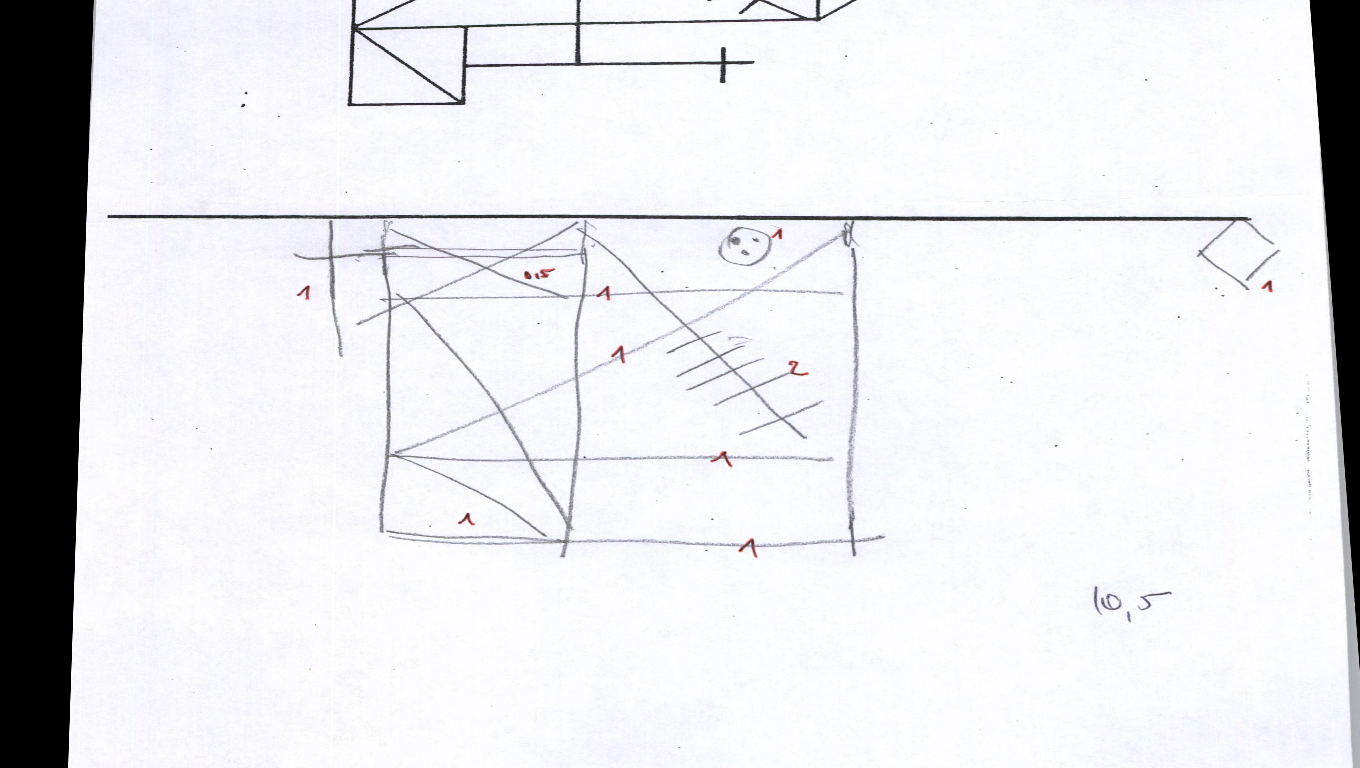 1
0,5
1
1
1
1
2
1
1
1
10,5